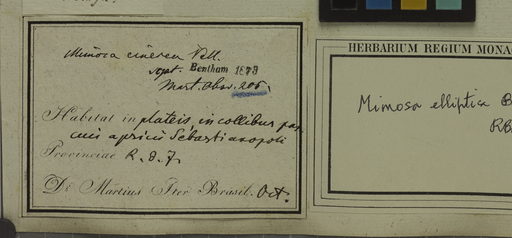 Mimosa cinerea Vell.
sept. Bentham 1873
Mart. Obs. 205.
Habitat in plateis, in collibus
apricis Sebastianopoli
Provinciae R. d. J.
Dr Martius Iter Brasil. Oct.
HERBARIUM REGIUM MONA
Mimosa elliptica B
RB